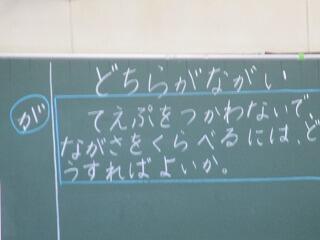 どちらがながい
が
てえぷをつかわないで、
ながさをくらべるには、ど
うすればよいか。